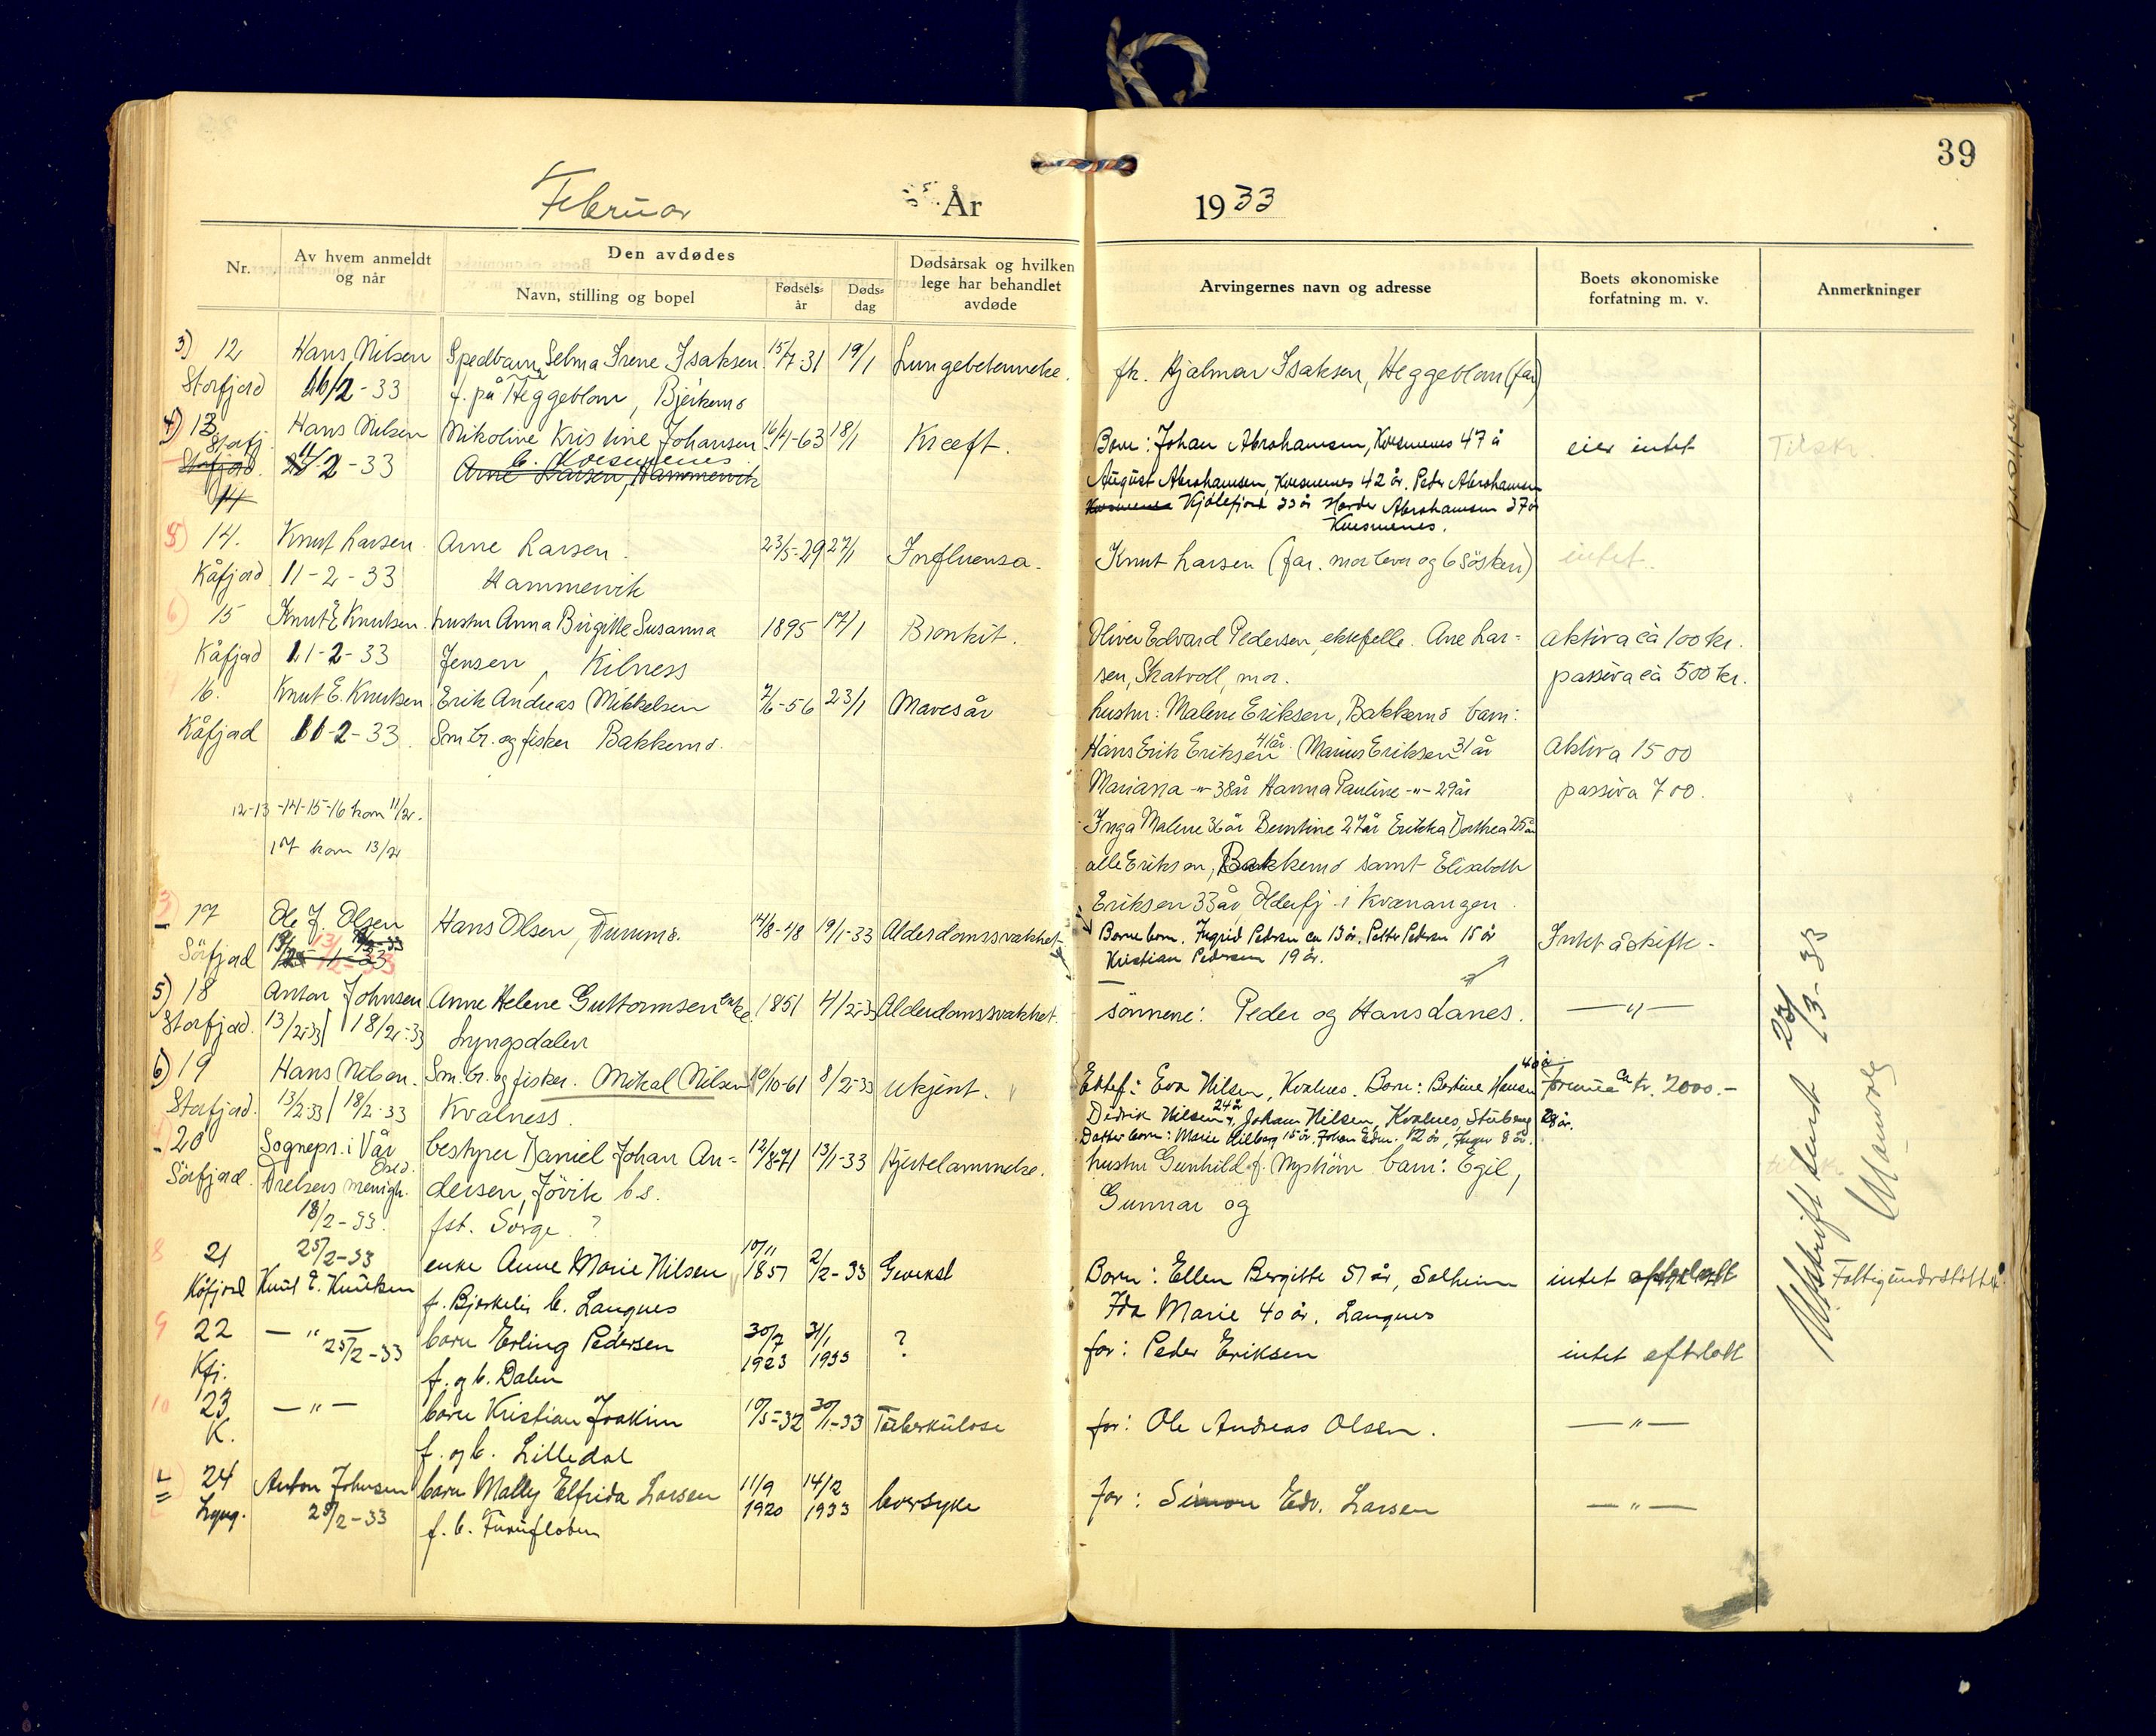 39
Februar År 1933
Nr.
Av hvem anmeldt
og når
Den avdødes
Navn, stilling og bopel
Fødsels-
år
Døds-
dag
Dødsårsak og hvilken
lege har behandlet
avdøde
Arvingernes navn og adresse
Boets økonomiske
forfatning m. v.
Anmerkninger
3) 12 Hans Nilsen Spedbarn Selma Irene Isaksen 15/7-31 19/1 Lungebetennelse. fh. Hjalmar Isaksen, Heggeblom (far)
Storfjord 11/2-33 f. på Heggeblom, Bjerkemo
4) 13 Hans Nilsen Nikoline Kristine Johansen 16/4-63 18/1 Kræft. Born: Johan Abrahamsen, Kvesmenes 47 å eier intet Tilskr.
Storfj. b. Kvesmenes
Storfjord. 11/2-33 Arne Larsen, Hammervik August Abrahamsen, Kvesmenes 42 år. Peder Abrahamsen
14 Kvesmenes Kjølefjord 33 år Hardor Abrahamsen 37 år
Kvesmenes.
5) 14. Knut Larsen Arne Larsen. 23/5-29 27/1 Influensa. Knut Larsen (far. mor lever og 6 søsken) intet.
Kåfjord 11-2-33 Hammervik
6) 15 Knut E Knutsen. hustru Anna Birgitte Susanna 1895 17/1 Bronkit. Oliver Edvard Pedersen, ektefelle. Ane Lar- aktiva ca 100 kr.
Kåfjord 11-2-33 Jensen, Kilness sen, Skatvoll, mor. passiva ca 500 kr.
16. Knut E. Knutsen Erik Andreas Mikkelsen 7/6-56 23/1 Mavesår hustru: Malene Eriksen, Bakkemo barn:
Kåfjord 11-2-33. Sm.br. og fisker Bakkemo. Hans Erik Eriksen 41 år. Marius Eriksen 31 år aktiva 1500
Marianna -"- 38 år Hanna Pauline -"- 29 år passiva 700.
12-13-14-15-16 kom 11/2. Inga Malene 36 år Berntine 27 år Erikka Dorthea 25 år
17 kom 13/2 alle Eriksen, Bakkemo samt Elisabeth
Eriksen 33 år, Olderfj. i Kvænangen.
3) 17 Ole J. Olsen Hans Olsen, 14/8-48 19/1-33 Alderdomssvakhet Barnebarn. Ingrid Pedersen ca 13 år, Petter Pedersen 15 år Intet å skifte-
Sørfjord 13/2-33 Kristian Pedersen 19 år.
5) 18 Anton Johnsen Anne Helene Guttormsen enke. 1851 4/2-33 Alderdomssvakhet. sønnene: Peder og Hans danes. -"-
Storfjord. 13/2-33 / 18/2-33 Lyngsdalen
6) 19 Hans Nilsen. Sm.br. og fisker. Mikal Nilsen 10/10-61 8/2-33 Ukjent. Ektef: Eva Nilsen, Kvalnes. Born: Bertine Hansen 40 år formue ca kr. 2000.-
Storfjord. 13/2-33 / 18/2-33 Kvalness. Didrik Nilsen 24 år, Johann Nilsen, Kvalnes, 28 år.
Datterborn: Marie 15 år. Johan 12 år, 8 år.
20 Sognepr. i Vår bestyrer Daniel Johan An- 12/8-71 13/1-33 Hjertelammelse. hustru Gunhild f. Nyström barn: Egil,
Sørfjord. Frelsers menigh. Oslo. dersen, Jøvik b.s. Gunnar og
18/2-33. fst. Sorge. ?
8 21 25/2-33 enke Anne Marie Nilsen 10/11 1857 2/2-33 Gvekst Born: Ellen Bergitte 51 år, Solheim intet efterlatt Fattigunderstøttet
Kåfjord Knut E. Knutsen f. Bjerkelis b. Langnes Ida Marie 40 år. Langnes
9 22 -"- 25/2-33 barn Erling Pedersen 30/7 1923 31/1 1933 ? far: Peder Eriksen intet efterlatt
Kfj. f. og b. Dalen
10 23 -"- barn Kristian Joakim 10/5-32 30/1-33 Tuberkulose far: Ole Andreas Olsen. -"-
K. f. og b. Lilledal
24 Anton Johnsen barn Mally Elfrida Larsen 11/9 1920 14/2 1933 leversyke far: Simon Edv. Larsen -"-
Lyng. 25/2-33 f. b. Furufloten
Utskrift sendt 23/3-33